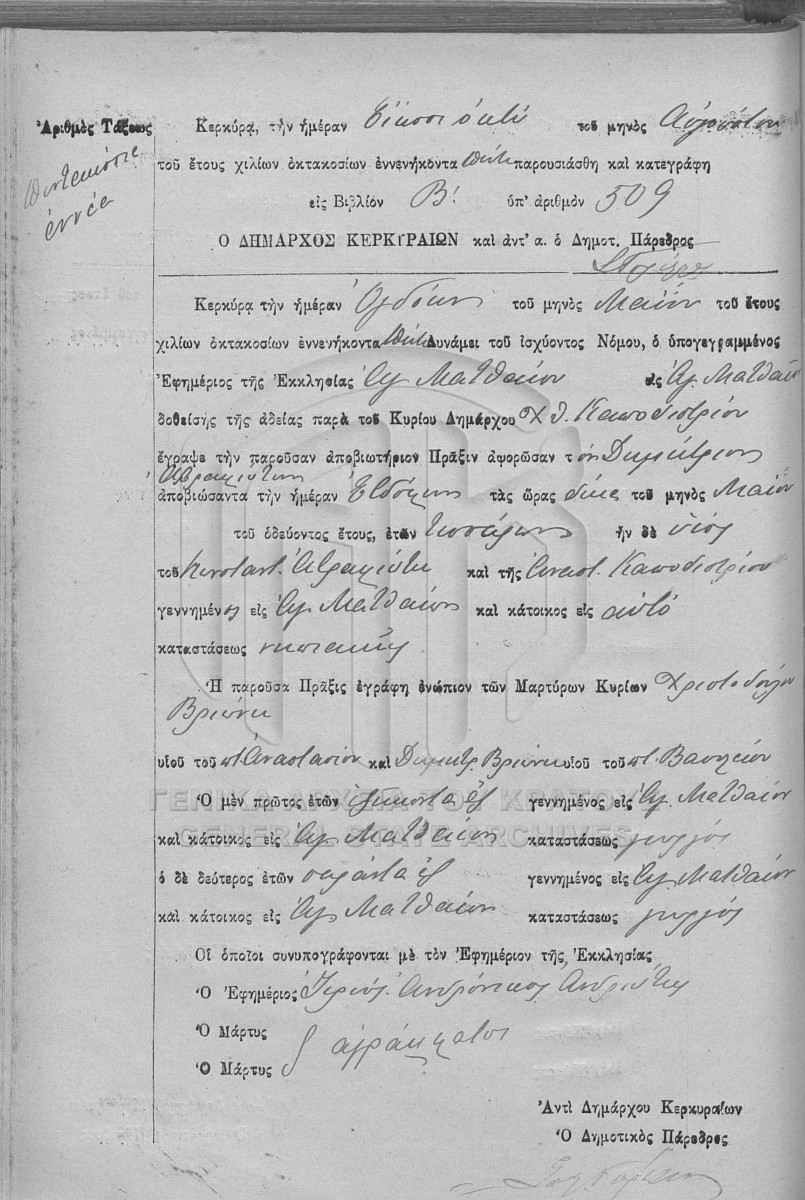 Ἀριθμὸς Τάξεως
πεντακόσια
ἐννέα
Κερκύρα, τὴν ἡμέραν Εἴκοσι ὀκτὼ τοῦ μηνὸς Αὐγούστου
τοῦ ἔτους χιλίων ὀκτακοσίων ἐννενήκοντα πέντε παρουσιάσθη καὶ κατεγράφη
εἰς Βιβλίον Β' ὑπ' ἀριθμὸν 509
Ο ΔΗΜΑΡΧΟΣ ΚΕΡΚΥΡΑΙΩΝ καὶ ἀντ' α. ὁ Δημοτ. Πάρεδρος
Κερκύρα τὴν ἡμέραν Ὀγδόην τοῦ μηνὸς Μαΐου τοῦ ἔτους
χιλίων ὀκτακοσίων ἐννενήκοντα πέντε Δυνάμει τοῦ ἰσχύοντος Νόμου, ὁ ὑπογεγραμμένος
Ἐφημέριος τῆς Ἐκκλησίας Ἁγ. Ματθαίου εἰς Ἁγ. Ματθαῖον
δοθείσης τῆς ἀδείας παρὰ τοῦ Κυρίου Δημάρχου Χ θ. Καποδιστρίου
ἔγραψε τὴν παροῦσαν ἀποβιωτήριον Πρᾶξιν ἀφορῶσαν τὸν Δημήτριον
ἀποβιώσαντα τὴν ἡμέραν Ἑβδόμην τὰς ὥρας δέκα τοῦ μηνὸς Μαΐου
τοῦ ὁδεύοντος ἔτους, ἐτῶν τεσσάρων ἦν δὲ υἱὸς
τοῦ Κωνσταντ. καὶ τῆς Ἀναστ. Καποδιστρίου
γεννημένος εἰς Ἁγ. Ματθαῖον καὶ κάτοικος εἰς αὐτὸ
καταστάσεως νηπιακῆς
Ἡ παροῦσα Πρᾶξις ἐγράφη ἐνώπιον τῶν Μαρτύρων Κυρίων Χριστοδούλου
Βριώνη
υἱοῦ τοῦ πτ. Ἀναστασίου καὶ Δημητρ. Βριώνη υἱοῦ τοῦ πτ. Βασιλείου
Ὁ μὲν πρῶτος ἐτῶν ἑξήκοντα ἓξ γεννημένος εἰς Ἁγ. Ματθαῖον
καὶ κάτοικος εἰς Ἁγ. Ματθαῖον καταστάσεως γεωργὸς
ὁ δὲ δεύτερος ἐτῶν σαράντα ἓξ γεννημένος εἰς Ἁγ. Ματθαῖον
καὶ κάτοικος εἰς Ἁγ. Ματθαῖον καταστάσεως γεωργὸς
Οἱ ὁποῖοι συνυπογράφονται μὲ τὸν Ἐφημέριον τῆς Ἐκκλησίας
Ὁ Ἐφημέριος Ἱερεὺς Ἀνδρόνικος Ἀνδριώτης
Ὁ Μάρτυς
ἀγράμματοι
Ὁ Μάρτυς
Ἀντὶ Δημάρχου Κερκυραίων
Ὁ Δημοτικὸς Πάρεδρος
ΓΕΝΙΚΑ ΑΡΧΕΙΑ ΤΟΥ ΚΡΑΤΟΥΣ
GENERAL STATE ARCHIVES